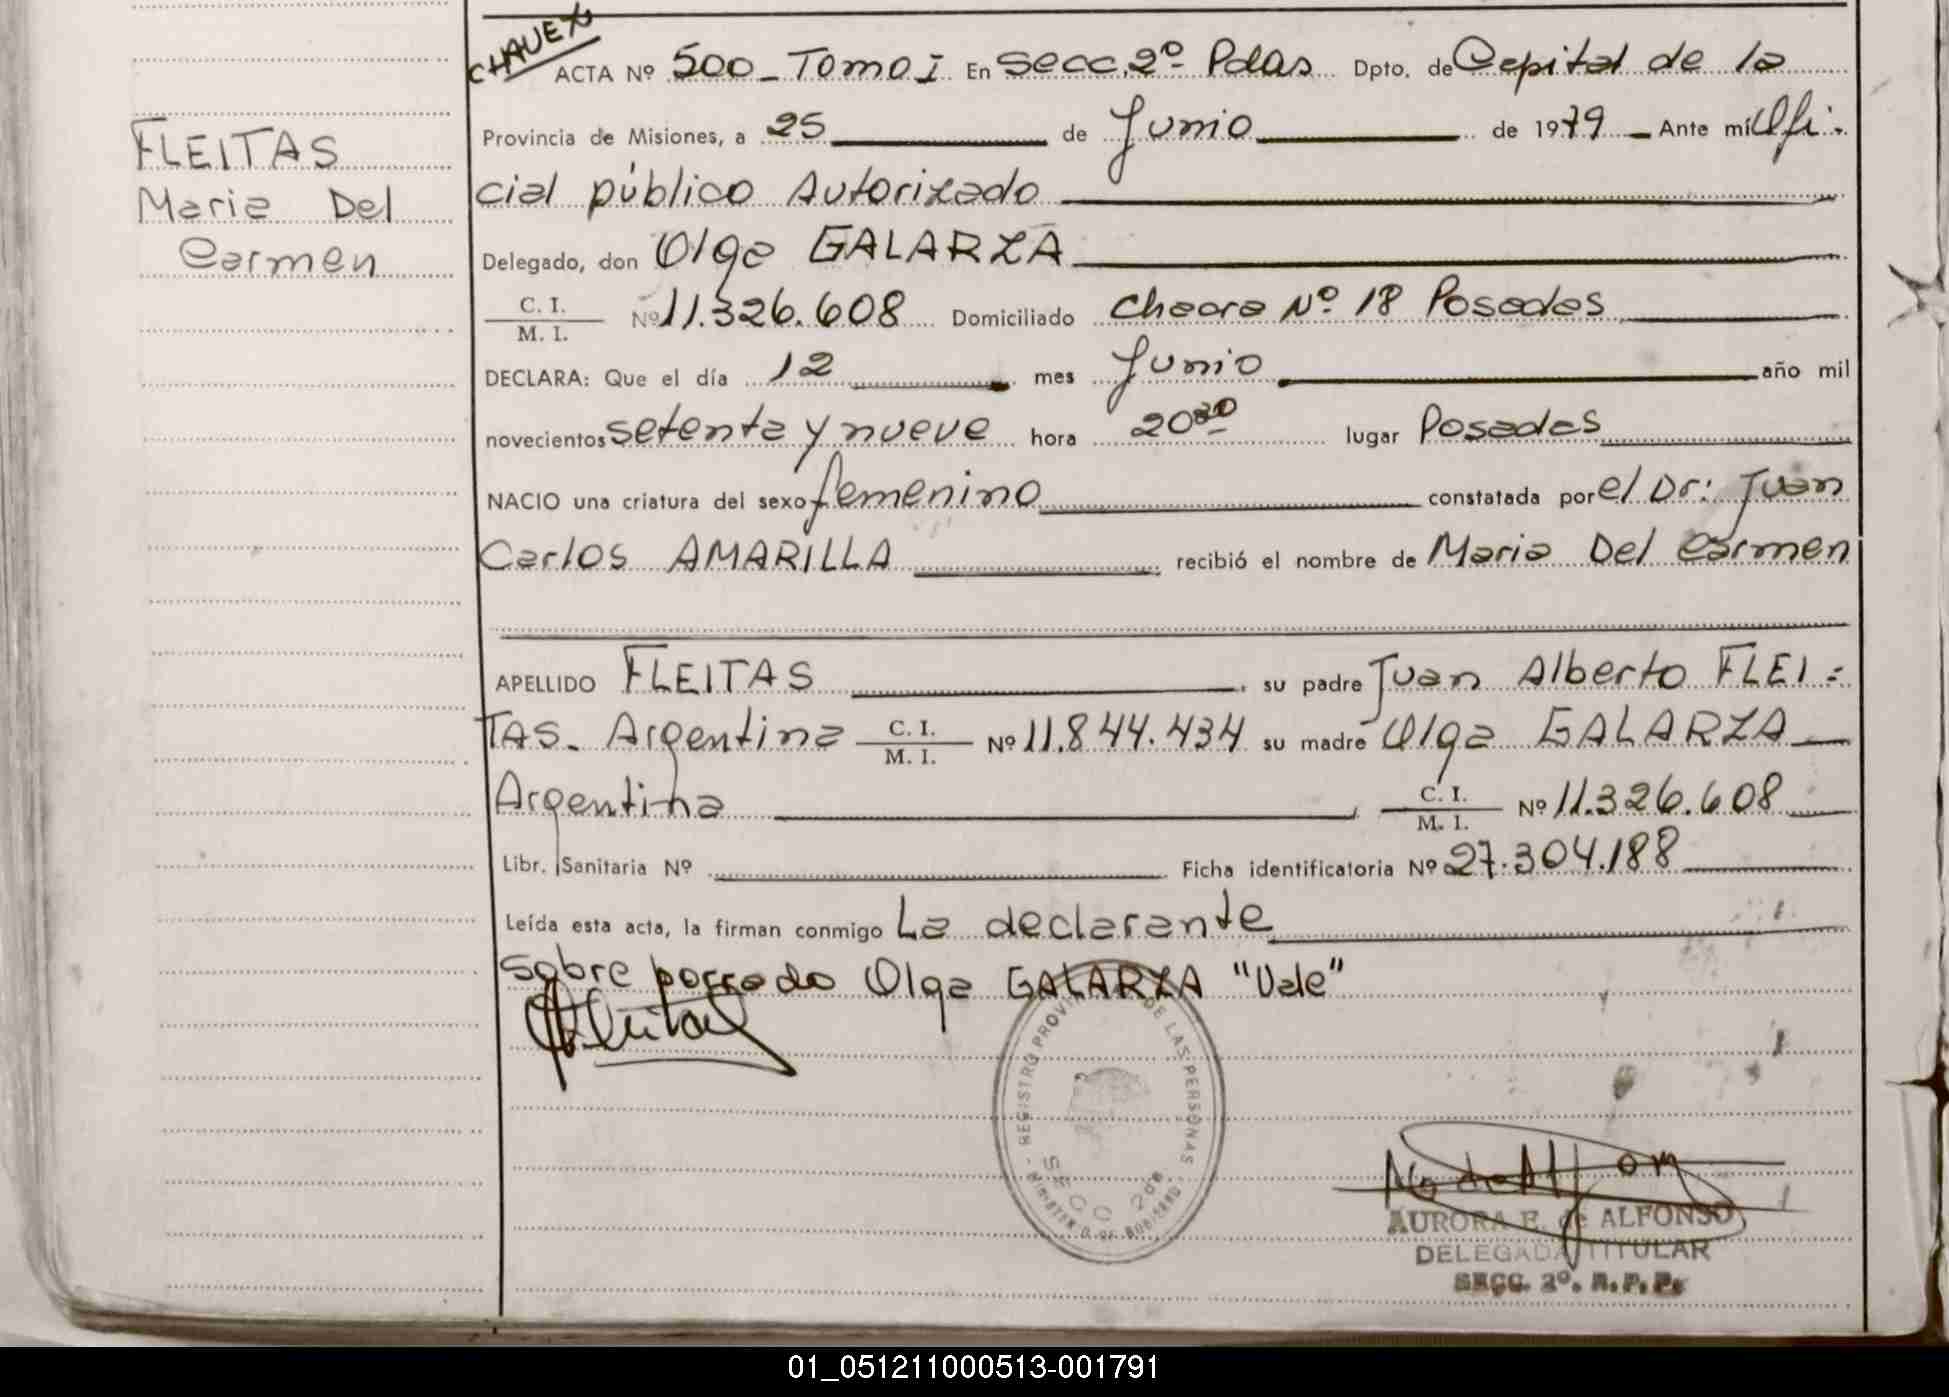 CHAVEZ
ACTA Nº 500 - Tomo I En Secc. 2º Pdas Dpto. de Capital de la
Provincia de Misiones, a 25 de Junio de 1979 Ante mí Ofi-
FLEITAS
cial público Autorizado
Maria Del
Carmen
Delegado, don Olga GALARZA
C. I.
M. I. Nº 11.326.608 Domiciliado Chacra Nº 18 Posadas
DECLARA: Que el día 12 mes Junio año mil
novecientos setenta y nueve hora 20 30 lugar Posadas
NACIO una criatura del sexo femenino constatada por el Dr: Juan
Carlos AMARILLA recibió el nombre de Maria Del Carmen
APELLIDO FLEITAS, su padre Juan Alberto FLEI=
TAS. Argentina C. I. M. I. Nº 11.844.434 su madre Olga GALARZA
Argentina, C. I. M. I. Nº 11.326.608
Libr. Sanitaria Nº Ficha identificatoria Nº 27.304.188
Leída esta acta, la firman conmigo La declarante
sobre borrado Olga GALARZA "Vale"
REGISTRO PROVINCIAL DE LAS PERSONAS
SECC 2da
AURORA E. de ALFONSO
DELEGADA TITULAR
SECC. 2º. R.P.P.
01_051211000513-001791